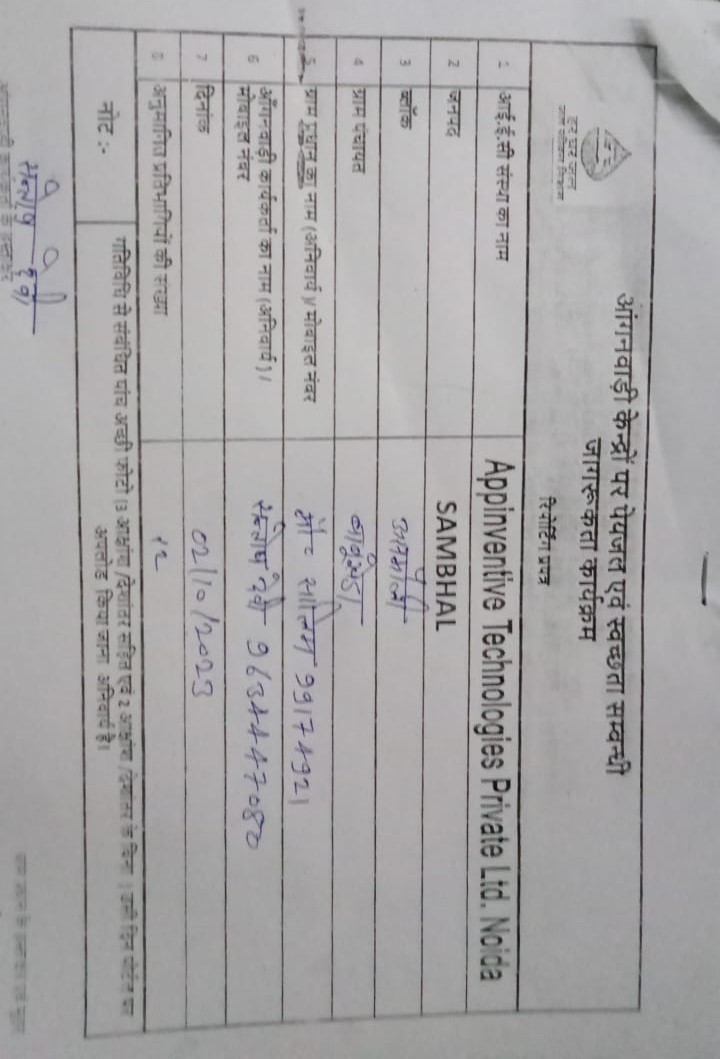 हर घर जल
जल जीवन मिशन
आंगनवाड़ी केन्द्रों पर पेयजल एवं स्वच्छता सम्बन्धी
जागरूकता कार्यक्रम
रिपोर्टिंग प्रपत्र
1 आई.ई.सी संस्था का नाम Appinventive Technologies Private Ltd. Noida
2 जनपद SAMBHAL
3 ब्लॉक असमोली
4 ग्राम पंचायत
5 ग्राम प्रधान का नाम (अनिवार्य)/ मोबाइल नंबर
6 आँगनवाड़ी कार्यकर्ता का नाम (अनिवार्य) / मोबाइल नंबर सन्तोष देवी
7 दिनांक 02/10/2023
8 अनुमानित प्रतिभागियों की संख्या १२
नोट :- गतिविधि से संबंधित पांच अच्छी फोटो (3 अक्षांश /देशांतर सहित एवं 2 अक्षांश /देशांतर के बिना ) उसी दिन पोर्टल पर
अपलोड किया जाना अनिवार्य है।